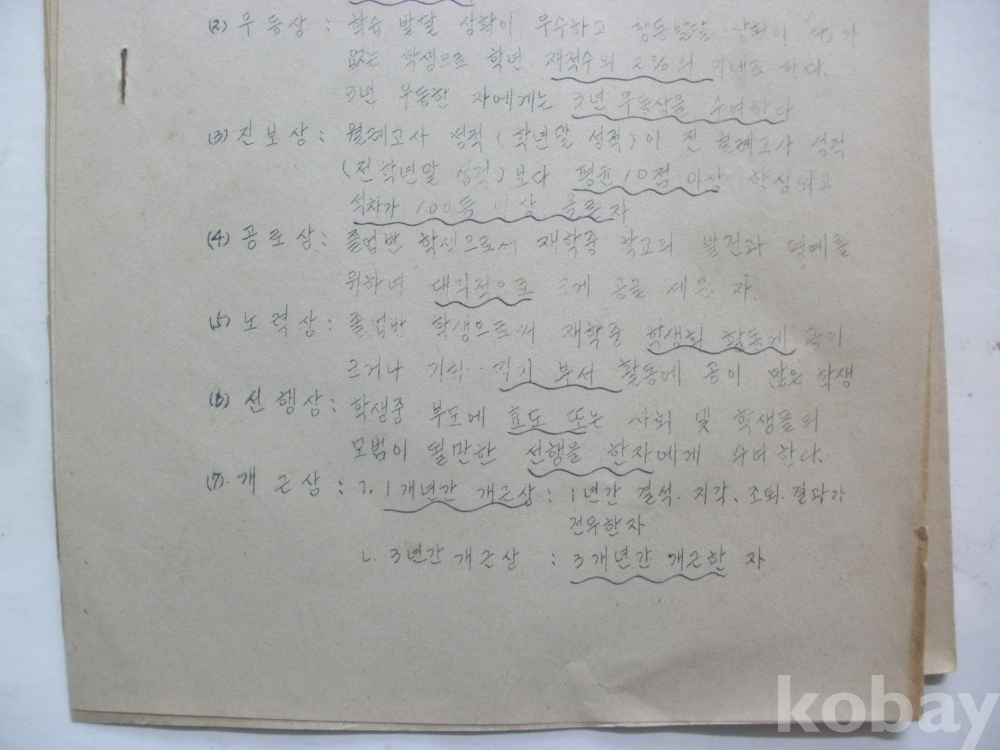 (2) 우등상 : 학습 발달 상황이 우수하고 행동발달 상황이 "다"가
없는 학생으로 학년 재적수의 2%의 이내로 하다.
3년 우등한 자에게는 3년 우등상을 수여한다
(3) 진보상 : 월례고사 성적(학년말 성적)이 전 월례고사 성적
(전학년말 성적)보다 평균 10점 이상 향상되고
석차가 100등 이상 오른자
(4) 공로상 : 졸업반 학생으로서 재학중 학교의 발전과 명예를
위하여 대외적으로 크게 공을 세운 자.
(5) 노력상 : 졸업반 학생으로써 재학중 학생회 활동에
각기 부서 활동에 공이 많은 학생
(6) 선행상 : 학생중 부모에 효도 또는 사회 및 학생들의
모범이 될만한 선행을 한자에게 수여한다.
(7) 개근상 : ㄱ. 1개년간 개근상 : 1년간 결석. 지각. 조퇴. 결과가
전무한자
ㄴ. 3년간 개근상 : 3개년간 개근한 자
kobay